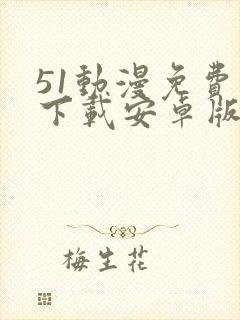 51動漫免費
下載安卓版
梅生花